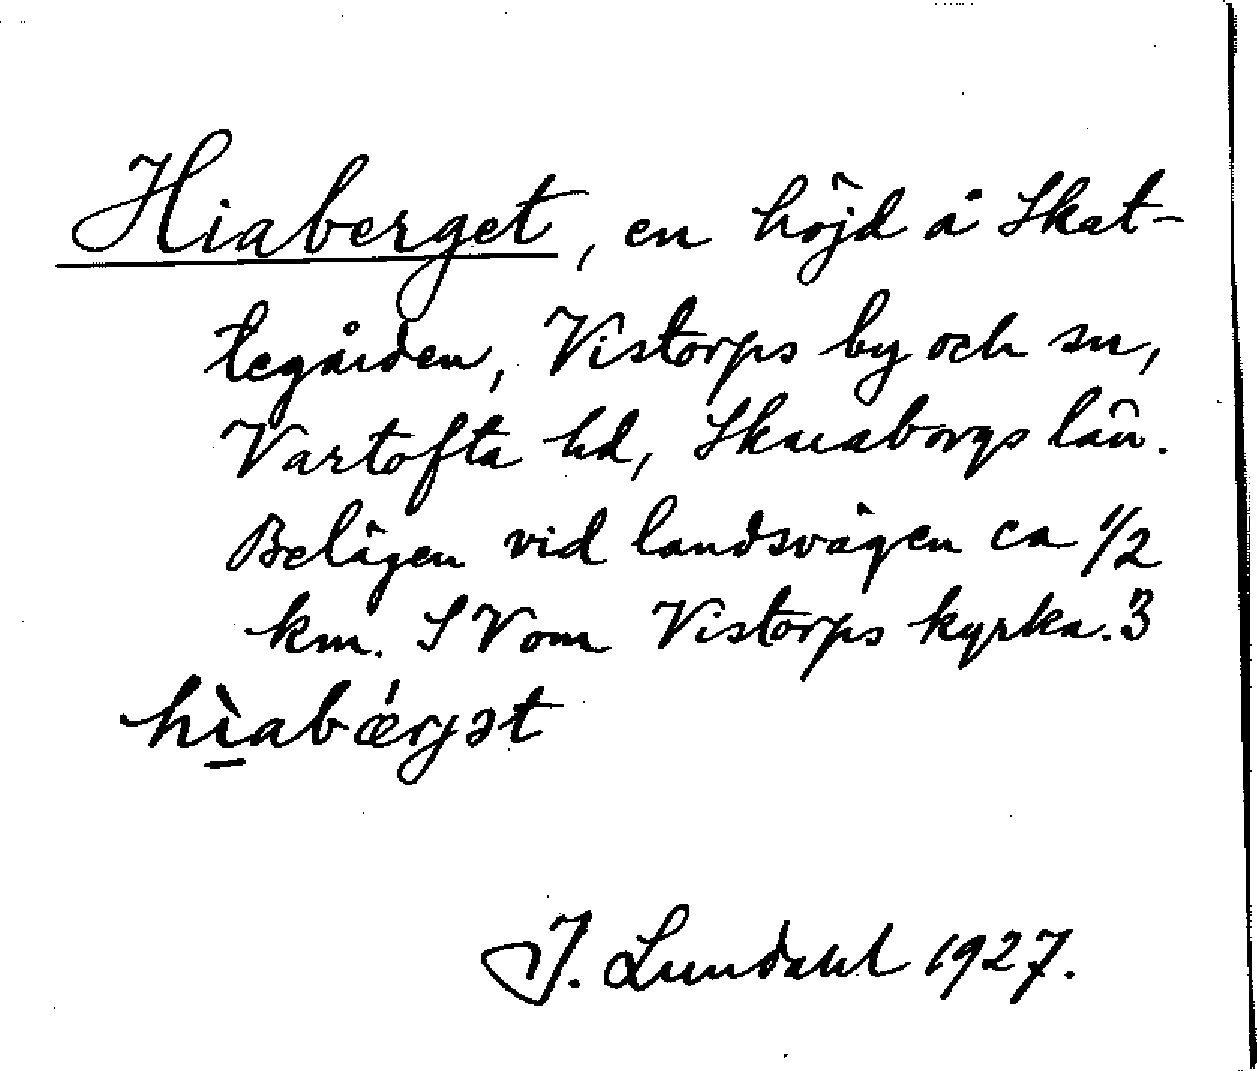 Hiaberget, en höjd å Skat-
tegården, Vistorps by och sn,
Vartofta hd, Skaraborgs län.
Belägen vid landsvägen ca 1/2
km. S V om Vistorps kyrka. 3
hìabǽrjət
I. Lundahl 1927.